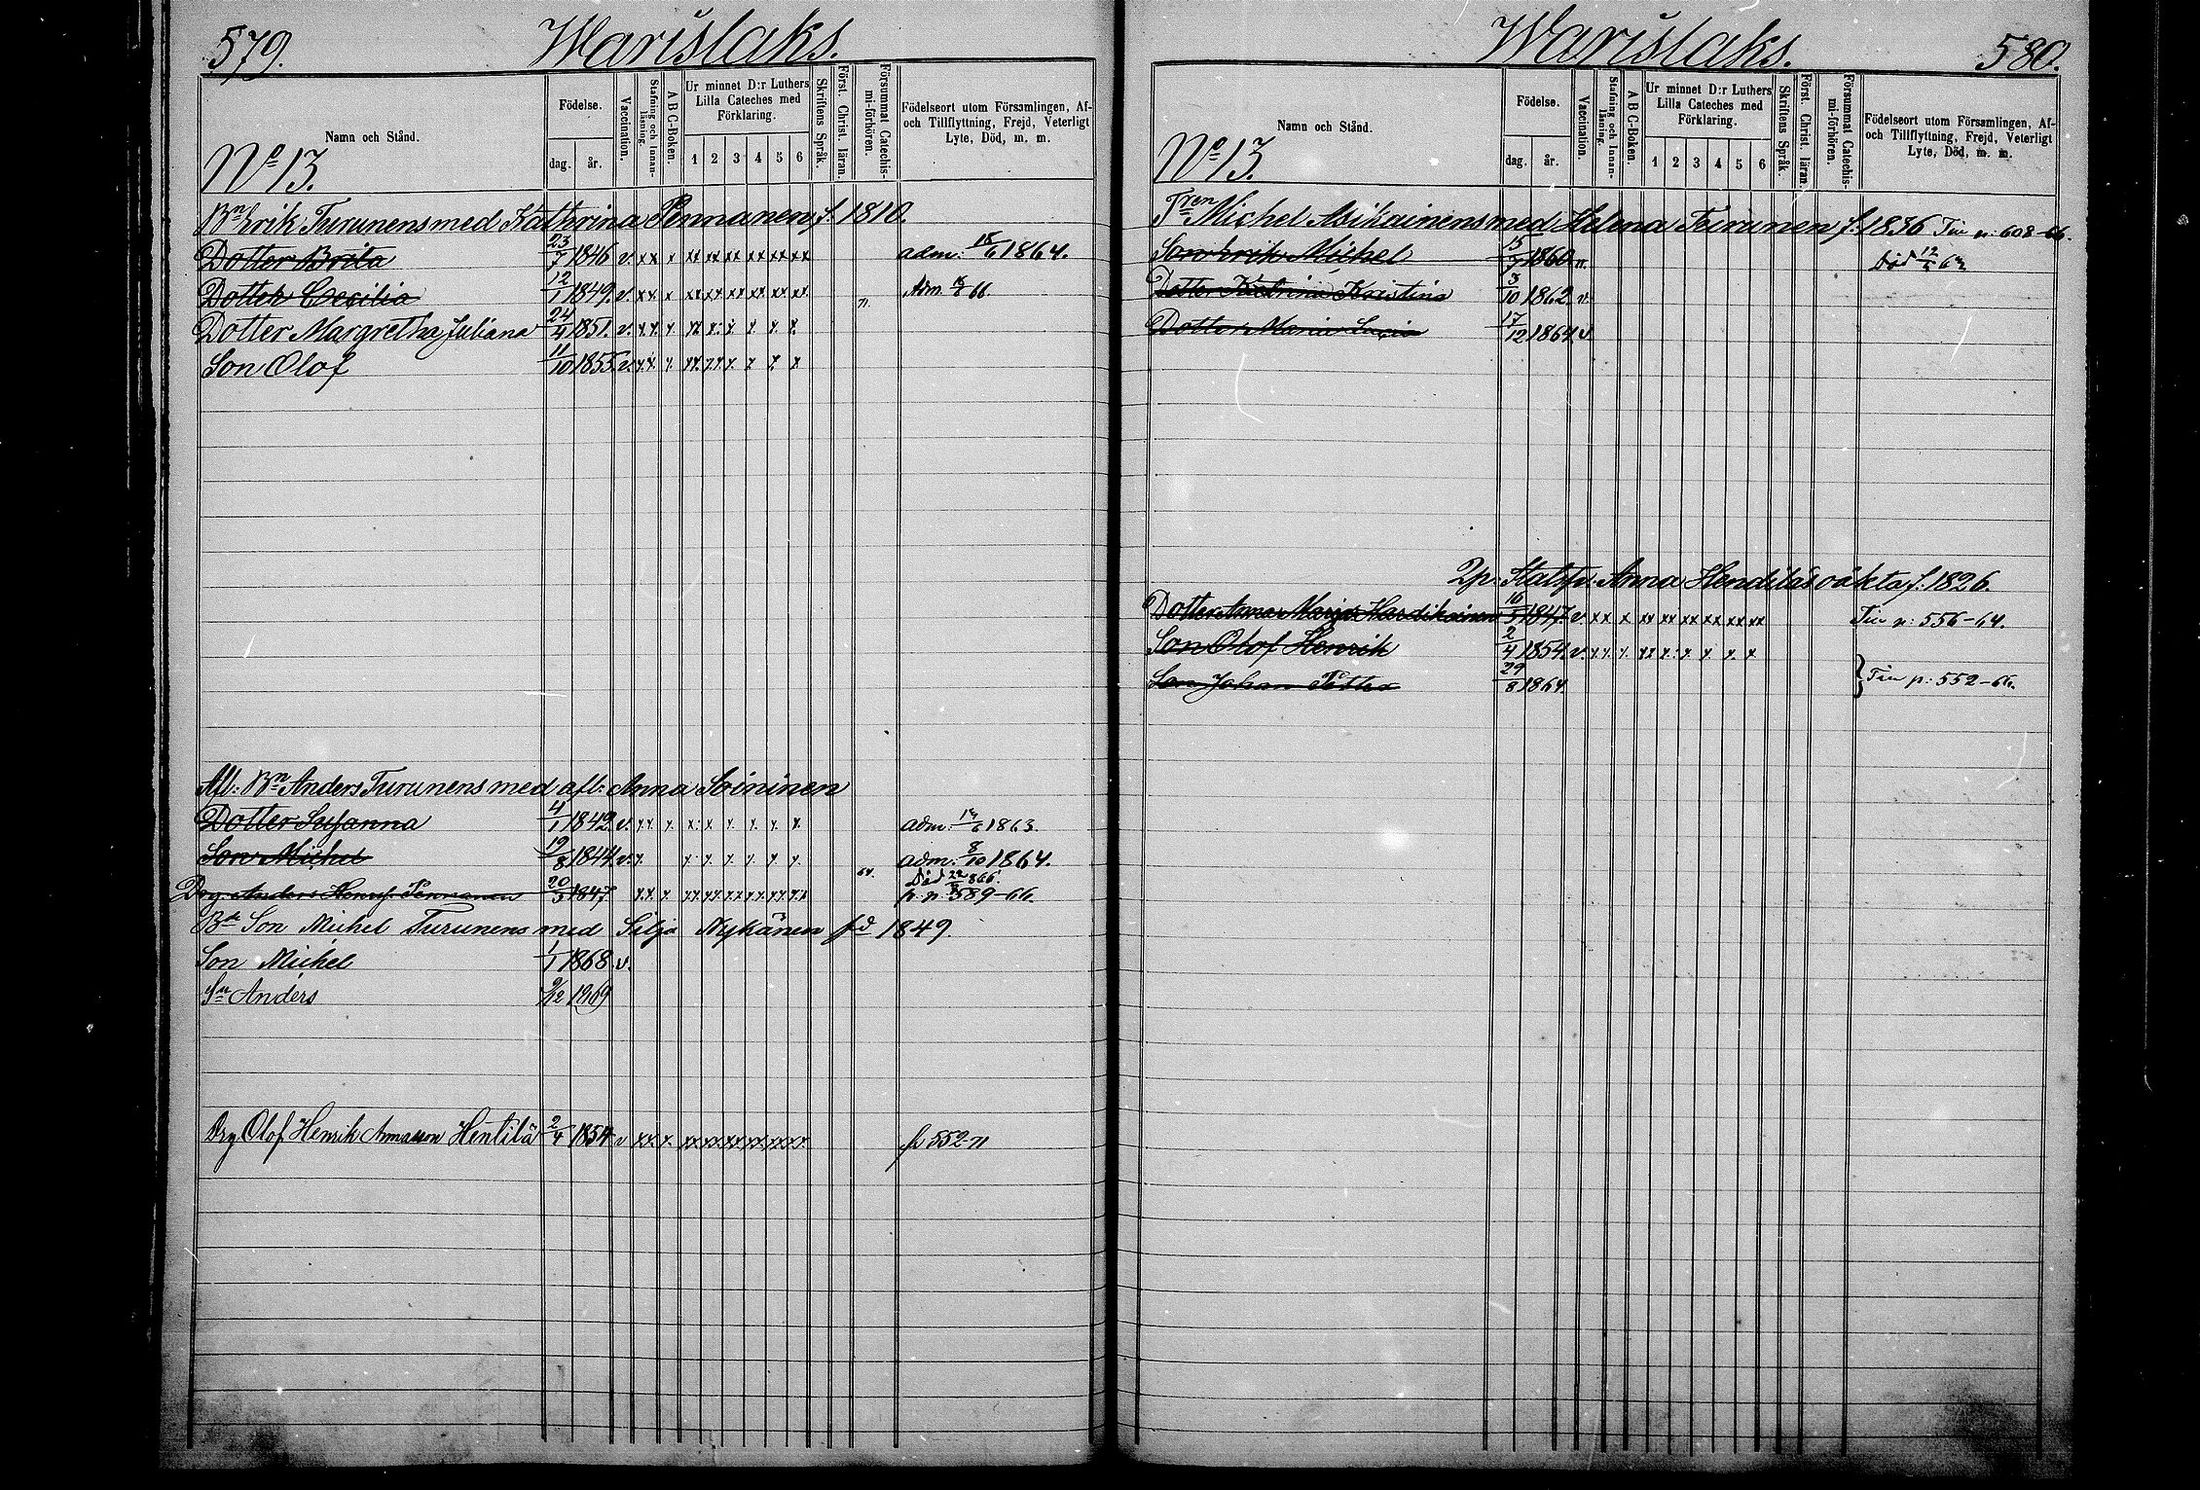 579. Warislaks.
Namn och Stånd.
Födelse.
dag. år.
Vaccination.
Stafning och Innan-läsning.
A B C-Boken.
Ur minnet D:r Luthers
Lilla Cateches med
Förklaring.
1 2 3 4 5 6
Skriftens Språk.
Först. Christ. läran.
Försummat Catechis-
mi-förhören.
Födelseort utom Församlingen, Af-
och Tillflyttning, Frejd, Veterligt
Lyte, Död, m. m.
No 13.
Bn Erik Turunens med Kathrina Pennanen f. 1810.
Dotter Brita 23/7 1846 v. xx x xx xx xx xx xx xx adm: 18/6 1864.
Dotter Cecilia 12/1 1849. v. xx x xx xx xx xx xx xx Adm. 66
Dotter Margretha Juliana 24/4 1851. v. x x x xx x x x x x
Son Olof 11/10 1855. v. x x x xx xx x x x x
Afl: Bn Anders Turunens med afl: Anna Soininen
Dotter Susanna 4/1 1842. v. xx x x x x x x x adm: 1863.
Son Michel 19/8 1844. v. x x x x x x x 64. adm: 8/10 1864.
Drg. Anders Henr. Pennanen 20/3 1847 xx x xx xx xx xx xx xx Död 22/ 866. p. n: 589-66.
Bde Son Michel Turunens med Silja Nykänen fd 1849.
Son Michel 1/1 1868 v.
Sn Anders 9/12 1869
Drg Olof Henrik Annasson Hentilä 2/4 1854 v xx x xx xx xx xx xx xx p 552-71
Warislaks. 580.
Namn och Stånd.
Födelse.
dag. år.
Vaccination.
Stafning och Innan-läsning.
A B C-Boken.
Ur minnet D:r Luthers
Lilla Cateches med
Förklaring.
1 2 3 4 5 6
Skriftens Språk.
Först. Christ. läran.
Försummat Catechis-
mi-förhören.
Födelseort utom Församlingen, Af-
och Tillflyttning, Frejd, Veterligt
Lyte, Död, m. m.
No 13.
Michel Asikainens med Helena Teirunen f. 1836 n: 608-66.
Son Erik Michel 15/7 1860. Död 12/
Dotter Kristina 3/10 1862. v.
Dotter Maria Lucia 17/12 1864. v.
Anna Hendiläs oäkta f. 1826.
Dotter Anna Maria 16/5 1847 v. xx x xx xx xx xx xx xx p: 556-64.
Son Olof Henrik 2/4 1854. v. x x x xx x x x x x
Son Johan Petter 29/8 1864. } p: 552-66.